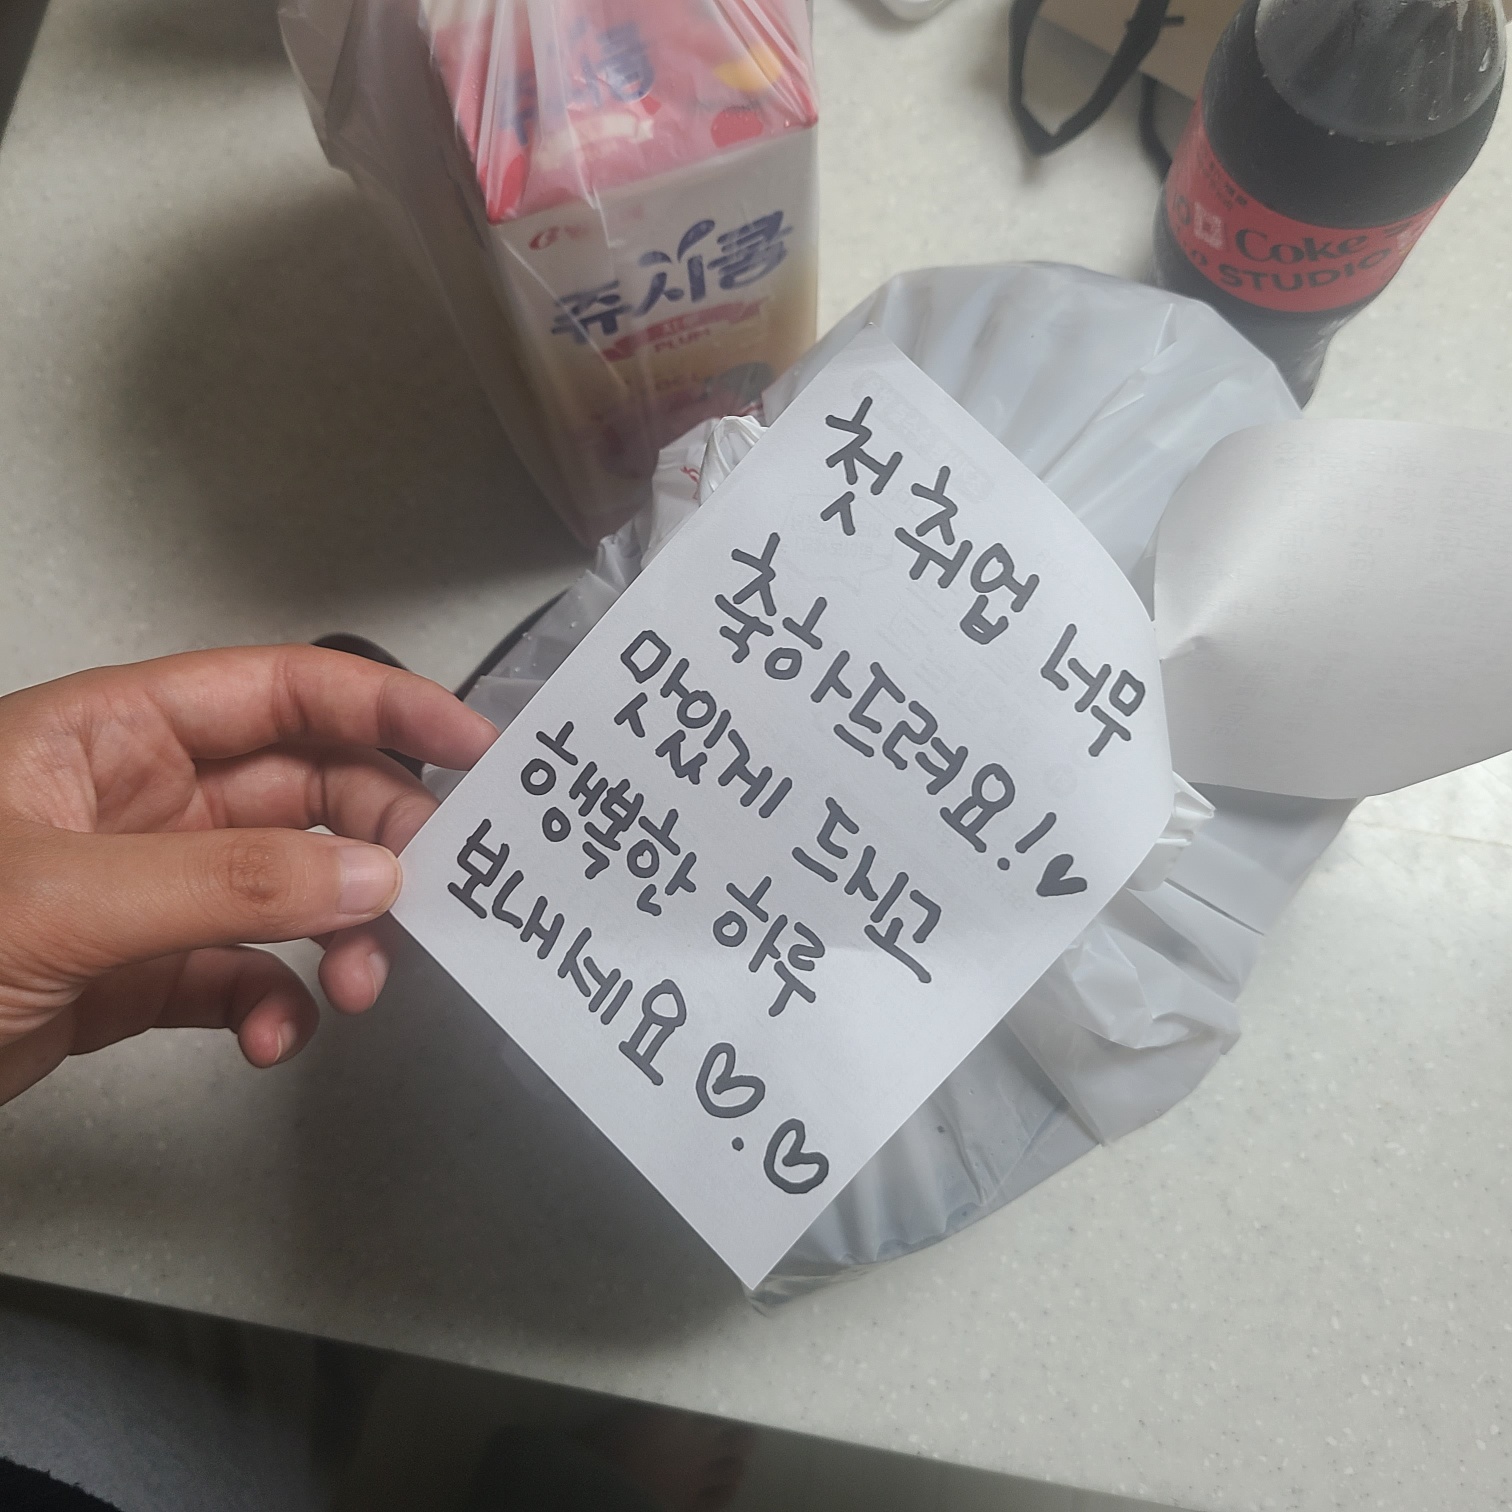 쥬시쿨
PLUM
Coke
STUDIO
첫 취업 너무
축하드려요! ♥
맛있게 드시고
행복한 하루
보내세요 ♡.♡